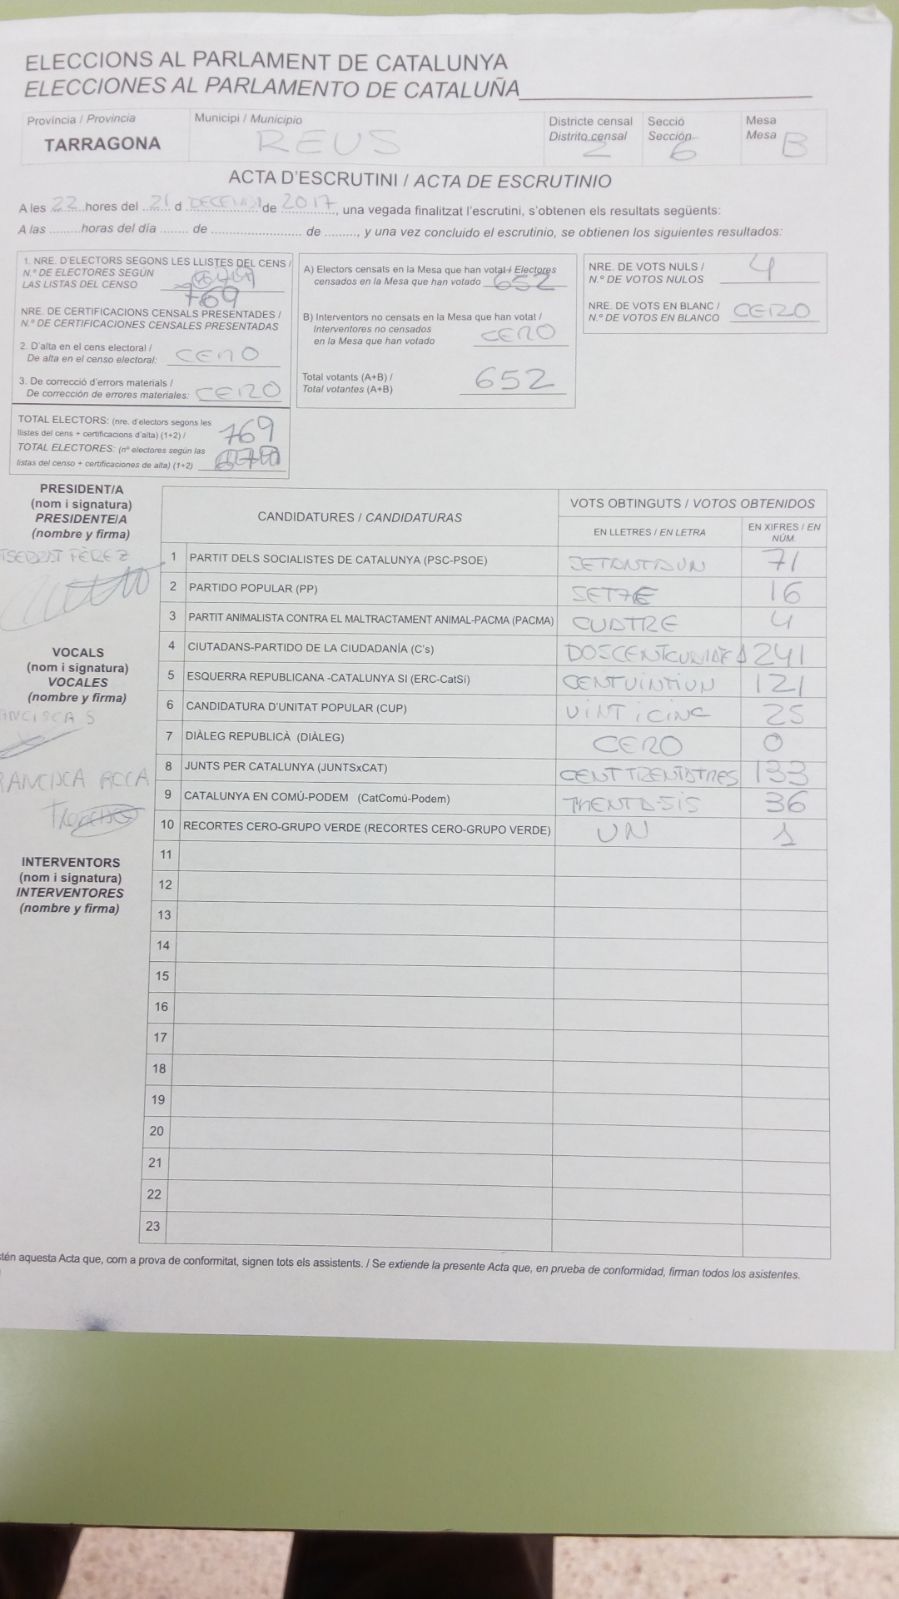 ELECCIONS AL PARLAMENT DE CATALUNYA
ELECCIONES AL PARLAMENTO DE CATALUÑA
Província / Provincia
TARRAGONA
Municipi / Municipio
REUS
Districte censal
Distrito censal
2
Secció
Sección
6
Mesa
Mesa
B
ACTA D'ESCRUTINI / ACTA DE ESCRUTINIO
A les 22 hores del 21 d de 2017, una vegada finalitzat l'escrutini, s'obtenen els resultats següents:
A las .........horas del día ........ de ........................ de ........., y una vez concluido el escrutinio, se obtienen los siguientes resultados:
1. NRE. D'ELECTORS SEGONS LES LLISTES DEL CENS /
N.º DE ELECTORES SEGÚN
LAS LISTAS DEL CENSO
769
NRE. DE CERTIFICACIONS CENSALS PRESENTADES /
N.º DE CERTIFICACIONES CENSALES PRESENTADAS
2. D'alta en el cens electoral /
De alta en el censo electoral: CERO
3. De correcció d'errors materials /
De corrección de errores materiales: CERO
TOTAL ELECTORS: (nre. d'electors segons les
llistes del cens + certificacions d'alta) (1+2) / 769
TOTAL ELECTORES: (nº electores según las
listas del censo + certificaciones de alta) (1+2)
A) Electors censats en la Mesa que han votat / Electores
censados en la Mesa que han votado 652
B) Interventors no censats en la Mesa que han votat /
Interventores no censados
en la Mesa que han votado CERO
Total votants (A+B) /
Total votantes (A+B) 652
NRE. DE VOTS NULS /
N.º DE VOTOS NULOS 4
NRE. DE VOTS EN BLANC /
N.º DE VOTOS EN BLANCO CERO
PRESIDENT/A
(nom i signatura)
PRESIDENTE/A
(nombre y firma)
PÉREZ
VOCALS
(nom i signatura)
VOCALES
(nombre y firma)
INTERVENTORS
(nom i signatura)
INTERVENTORES
(nombre y firma)
CANDIDATURES / CANDIDATURAS
VOTS OBTINGUTS / VOTOS OBTENIDOS
EN LLETRES / EN LETRA
EN XIFRES / EN NÚM.
1 PARTIT DELS SOCIALISTES DE CATALUNYA (PSC-PSOE) SETANTAUN 71
2 PARTIDO POPULAR (PP) SETZE 16
3 PARTIT ANIMALISTA CONTRA EL MALTRACTAMENT ANIMAL-PACMA (PACMA) CUATRE 4
4 CIUTADANS-PARTIDO DE LA CIUDADANÍA (C's) 241
5 ESQUERRA REPUBLICANA -CATALUNYA SI (ERC-CatSi) CENTVINTIUN 121
6 CANDIDATURA D'UNITAT POPULAR (CUP) VINTICINC 25
7 DIÀLEG REPUBLICÀ (DIÀLEG) CERO 0
8 JUNTS PER CATALUNYA (JUNTSxCAT) CENT TRENTATRES 133
9 CATALUNYA EN COMÚ-PODEM (CatComú-Podem) TRENTA-SIS 36
10 RECORTES CERO-GRUPO VERDE (RECORTES CERO-GRUPO VERDE) UN 1
11
12
13
14
15
16
17
18
19
20
21
22
23
aquesta Acta que, com a prova de conformitat, signen tots els assistents. / Se extiende la presente Acta que, en prueba de conformidad, firman todos los asistentes.